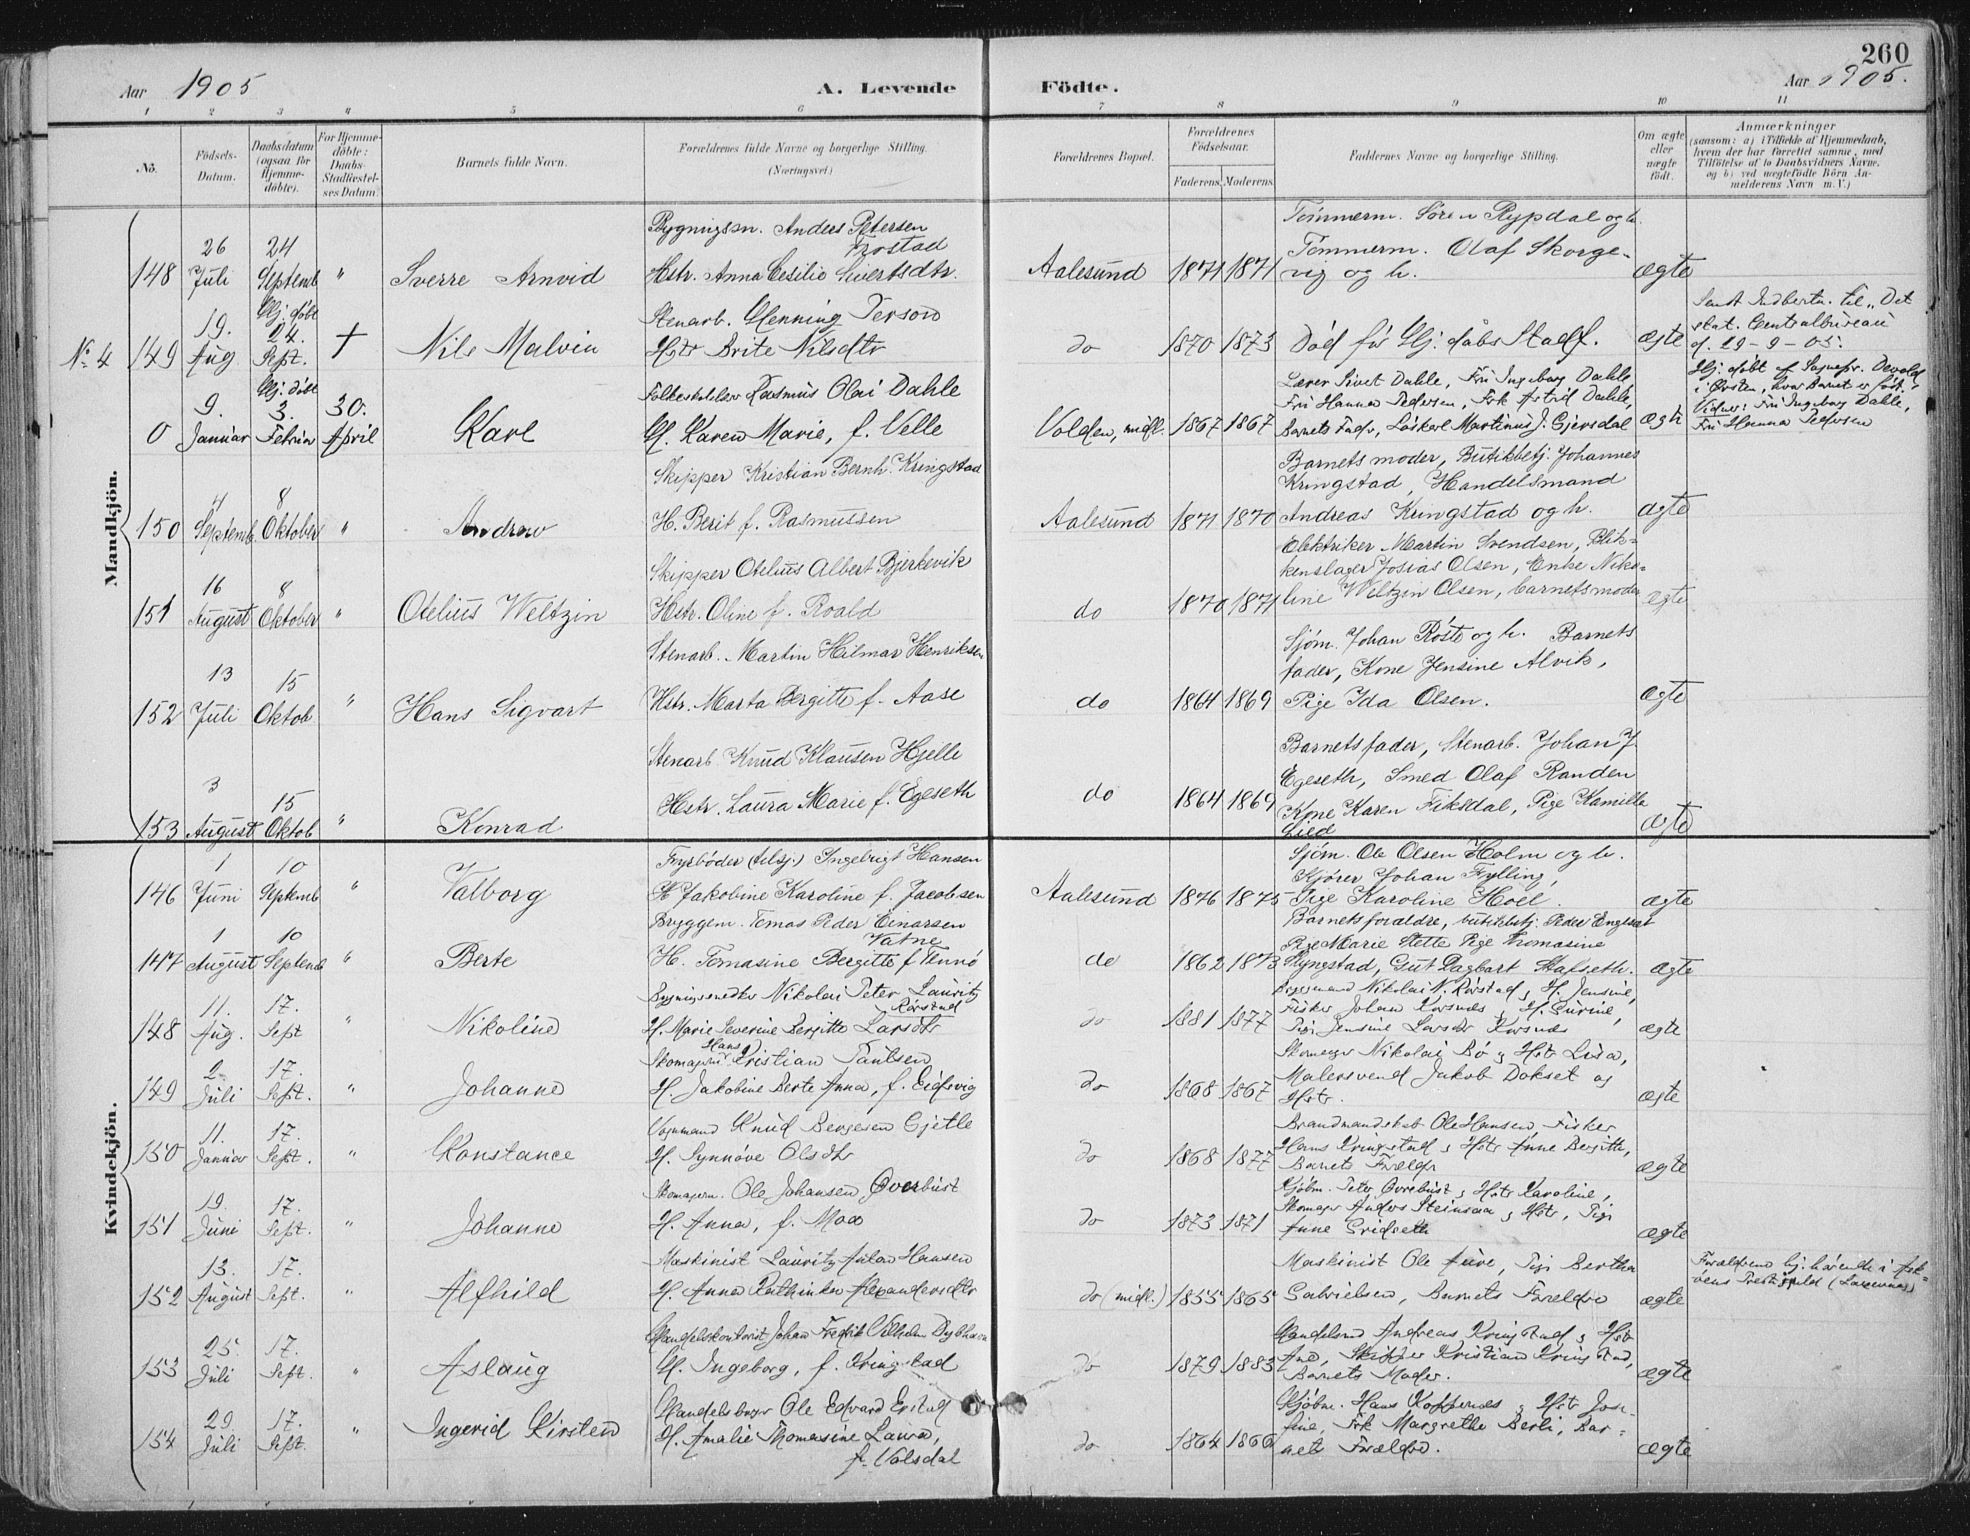 260
Aar 1905
A. Levende Födte.
Aar 1905.
1 2 3 4 5 6 7 8 9 10 11
No.
Födsels-Datum.
Daabsdatum (ogsaa for Hjemme-döbte).
For Hjemme-döbte: Daabs-Stadfæstel-ses Datum.
Barnets fulde Navn.
Forældrenes fulde Navne og borgerlige Stilling. (Næringsvei)
Forældrenes Bopæl.
Forældrenes Födselsaar.
Faderens. Moderens.
Faddernes Navne og borgerlige Stilling.
Om ægte eller uægte födt.
Anmærkninger
(saasom: a) i Tilfælde af Hjemmedaab, hvem der har forrettet samme, med Tilföielse af to Daabsvidners Navne, og b) ved uægtefödte Börn An-melderens Navn m. V.)
Mandkjön.
Bygningssn. Anders Petersen
Trostad
148 26 Juli 24 Septemb " Sverre Arnvid
Hstr. Anna Cesilie Sivertsdtr.
Aalesund 1871 1871
Tømmerm. Søren Rypdal og h.
Tømmerm. Olaf Skorge-
vig og h. ægte
No 4 149 19. Aug. Hj. døbt 24. Sept. † Nils Malvin
Stenarb. Henning Person
Hstr Brite Nilsdtr
do 1870 1873 Død før Hj. dåbs Stadf. ægte
Sendt Indbertn. til "Det
stat. Centralbureau
d. 29-9-05.
0 9. Januar Hj. døbt 3. Februar 30. April Karl
Folkeskolelærer Rasmus Olai Dahle
H. Karen Marie, f. Velle
Volden, midl. 1867 1867
Lærer Sivert Dahle, Fru Ingeborg Dahle,
Fru Hanna Pedersen, Frk Astrid Dahle,
Barnets Fader, Løskarl Martinus J. Gjersdal ægte
Hj. døbt af Sognepr. Devold
i Ørsten, hvor Barnet er født.
Vidner: Fru Ingeborg Dahle,
Fru Hanna Pedersen
150 4 Septemb. 8 Oktober " Andrew
Skipper Kristian Bernh. Kringstad
H. Berit f. Rasmussen
Aalesund 1871 1870
Barnets moder, Butikbetj. Johannes
Kringstad, Handelsmand
Andreas Kringstad og h. ægte
151 16 August 8 Oktober " Otelius Weltzin
Skipper Otelius Albert Bjerkevik
Hstr. Oline f. Roald
do 1870 1871
Elektriker Martin Svendsen, Blik-
kenslager Josias Olsen, Enke Niko-
line Weltzin Olsen, barnets moder ægte
152 13 Juli 15 Oktob " Hans Sigvart
Stenarb. Martin Hilmar Henriksen
Hstr. Marta Bergitte f. Aase
do 1864 1869
Sjøm. Johan Røste og h. Barnets
fader, Kone Jensine Alvik,
Pige Ida Olsen. ægte
153 3 August 15 Oktob " Konrad
Stenarb. Knud Klausen Hjelle
Hstr. Laura Marie f. Egeseth
do 1864 1869
Barnets fader, Stenarb. Johan J.
Egeseth, Smed Olaf Randen
Kone Karen Fiksdal, Pige Kamilla
Lied ægte
Kvindekjön.
146 1 Juni 10 Septemb " Valborg
Fyrbøder (tilsj.) Ingebrigt Hansen
H Jakobine Karoline f. Jacobsen
Aalesund 1876 1875
Sjøm. Ole Olsen Holm og h.
Kjører Johan Fylling,
Pige Karoline Hoel. ægte
147 1 August 10 Septemb " Berte
Bryggem. Tomas Peder Einarsen
Vatne
H. Tomasine Bergitte f Tennø
do 1862 1873
Barnets forældre, butikbetj. Peder Engeset
Pige Marie Stette Pige Thomasine
Ryngstad, Gut Dagbart Hafseth. ægte
148 11. Aug. 17. Sept " Nikoline
Bygningssnedker Nikolai Peter Lauritz
Rørstad
H. Marie Severine Bergitte Larsdtr
do 1881 1877
Nikolai N. Rørstad, H. Jensine,
Fisker Johan Korsnes, H. Gurine,
Pige Jensine Larsdtr Korsnes ægte
149 2 Juli 17. Sept. " Johanne
Skomagerm Hans Kristian Paulsen
H. Jakobine Berte Anna, f. Eidsvig
do 1868 1867
Skomager Nikolai Bø, Hstr Lisa,
Malersvend Jakob Dokset og
Hstr. ægte
150 11. Januar 17. Sept. " Konstance
Vognmand Knud Bergesen Gjetle
H. Synnøve Olsdtr
do 1868 1877
Brandmandskab Ole Hansen, Fisker
Hans Kringstad, Hstr Anne Bergitte,
Barnets Forældr ægte
151 19. Juni 17. Sept. " Johanne
Skomagerm. Ole Johansen Øverbust
H. Anna, f. Moa
do 1873 1871
Kjøbm. Peter Øvrebust, Hstr Karoline,
Skomager Anders Steinsaa, Hstr, Pige
Anne Gridseth ægte
152 13. August 17. Sept. " Alfhild
Maskinist Lauritz Anton Hansen
H. Anna Kathinka Alexandersdtr
do (midl.) 1855 1865
Maskinist Ole Aure, Pige Berthe
Gabrielsen, Barnets Forældre ægte
Forældrene hj. hørende i
Præstegjeld
153 25. Juli 17. Sept. " Aslaug
Handelskontorist Johan Fredrik Vilhelm
H. Ingeborg, f. Kringstad
do 1879 1883
Handelsmd Andreas Kringstad, Hstr
Ane, Skipper Kristian Kringstad,
Barnets Moder. ægte
154 29. Juli 17. Sept. " Ingerid Kirsten
Handelsborger Ole Edvard
H. Amalie Thomasine Laura,
f. Volsdal
do 1864 1866
Kjøbm. Hans Koppernæs, Hstr Jose-
fine, Frk Margrethe Berli, Bar-
nets Forældre. ægte